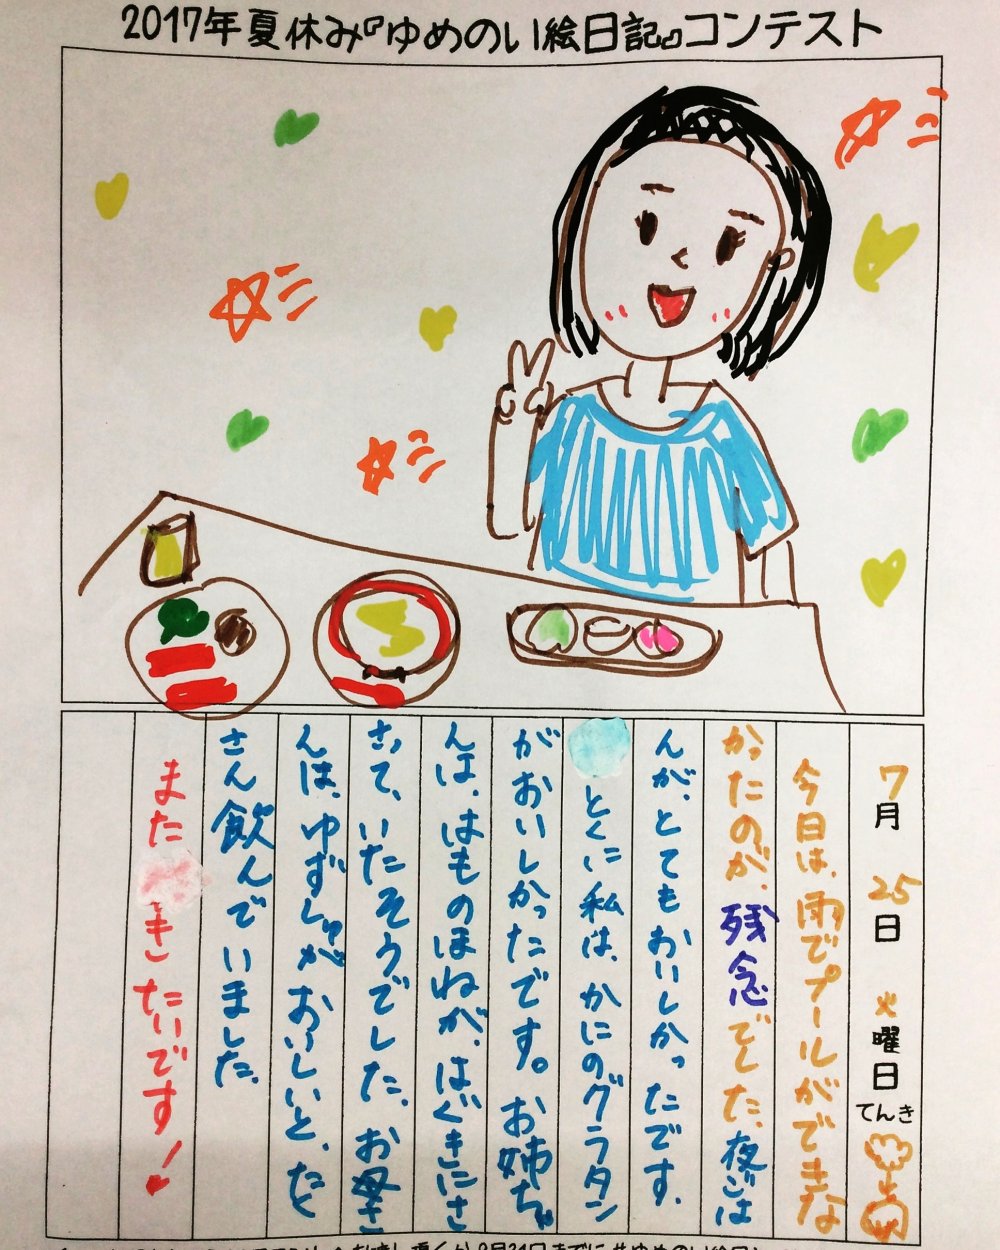 2017年夏休み『ゆめのい絵日記』コンテスト
7月 25日 火曜日 てんき
今日は、雨でプールができな
かったのが、残念でした、夜ごは
んが、とてもおいしかったです、
とくに私は、かにのグラタン
がおいしかったです。お姉ちゃ
んは、はものほねが、はぐきにさ
さって、いたそうでした、お母さ
んは、ゆずしゅがおいしいと、たく
さん飲んでいました、
また きたいです!